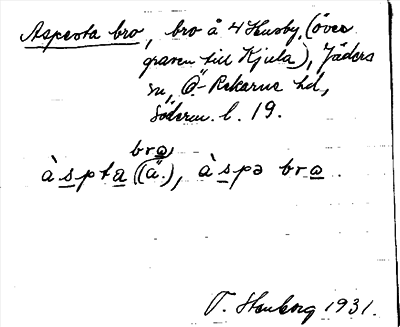 Aspesta bro, bro å 4 Husby, (över
graven till Kjula), Jäders
sn, Ö-Rekarne hd,
Söderm. l. 19.
bro
àspta (ä.), àspə bro.
1931.